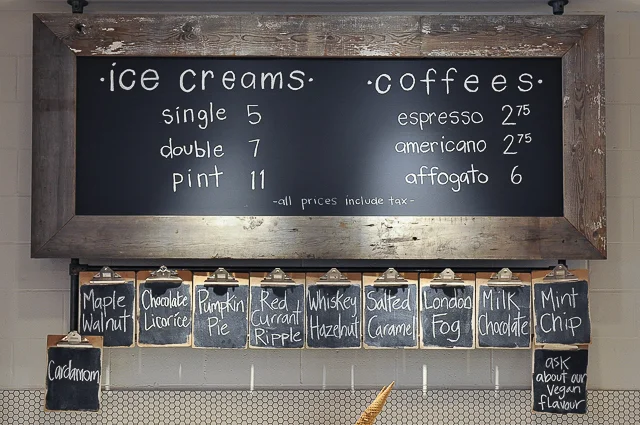 ·ice creams·
single 5
double 7
pint 11
·coffees·
espresso 2⁷⁵
americano 2⁷⁵
affogato 6
-all prices include tax-
Maple
Walnut
Chocolate
Licorice
Pumpkin
Pie
Red
Currant
Ripple
Whiskey
Hazelnut
Salted
Caramel
London
Fog
Milk
Chocolate
Mint
Chip
Cardamom
ask
about our
Vegan
flavour